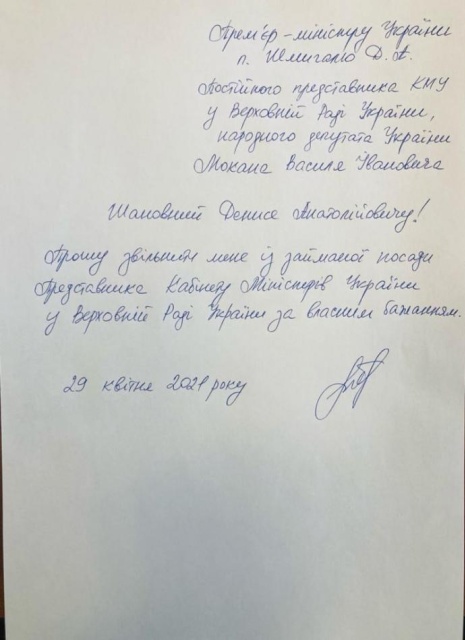 Прем'єр-міністру України
п. Шмигалю Д.А.
Постійного представника КМУ
у Верховній Раді України,
народного депутата України
Мокана Василя Івановича
Шановний Денисе Анатолійовичу!
Прошу звільнити мене із займаної посади
Представника Кабінету Міністрів України
у Верховній Раді України за власним бажанням.
29 квітня 2021 року